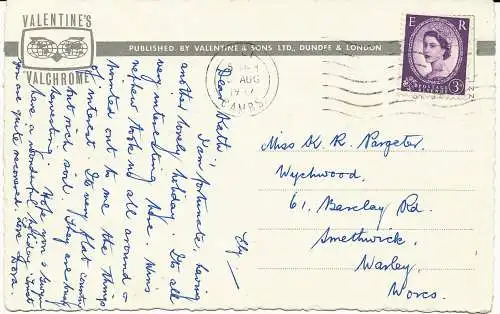 VALENTINE'S
VALCHROME
PUBLISHED BY VALENTINE & SONS LTD., DUNDEE & LONDON
E R
POSTAGE
REVENUE
3D
AUG
CAMBS
Ely —
Dear Kath:
I'm fortunate, having
another lovely holiday. It's all
very interesting here. Wins
nephew took us all around &
pointed out to me the things
of interest. It's very flat country
but rich soil. They are busy
harvesting. Hope you & Gwen
have a wonderful holiday. Trust
you are quite recovered. Love Dora
Miss K. R. Pargeter,
Wychwood,
61, Barclay Rd.
Smethwick,
Warley,
Worcs.